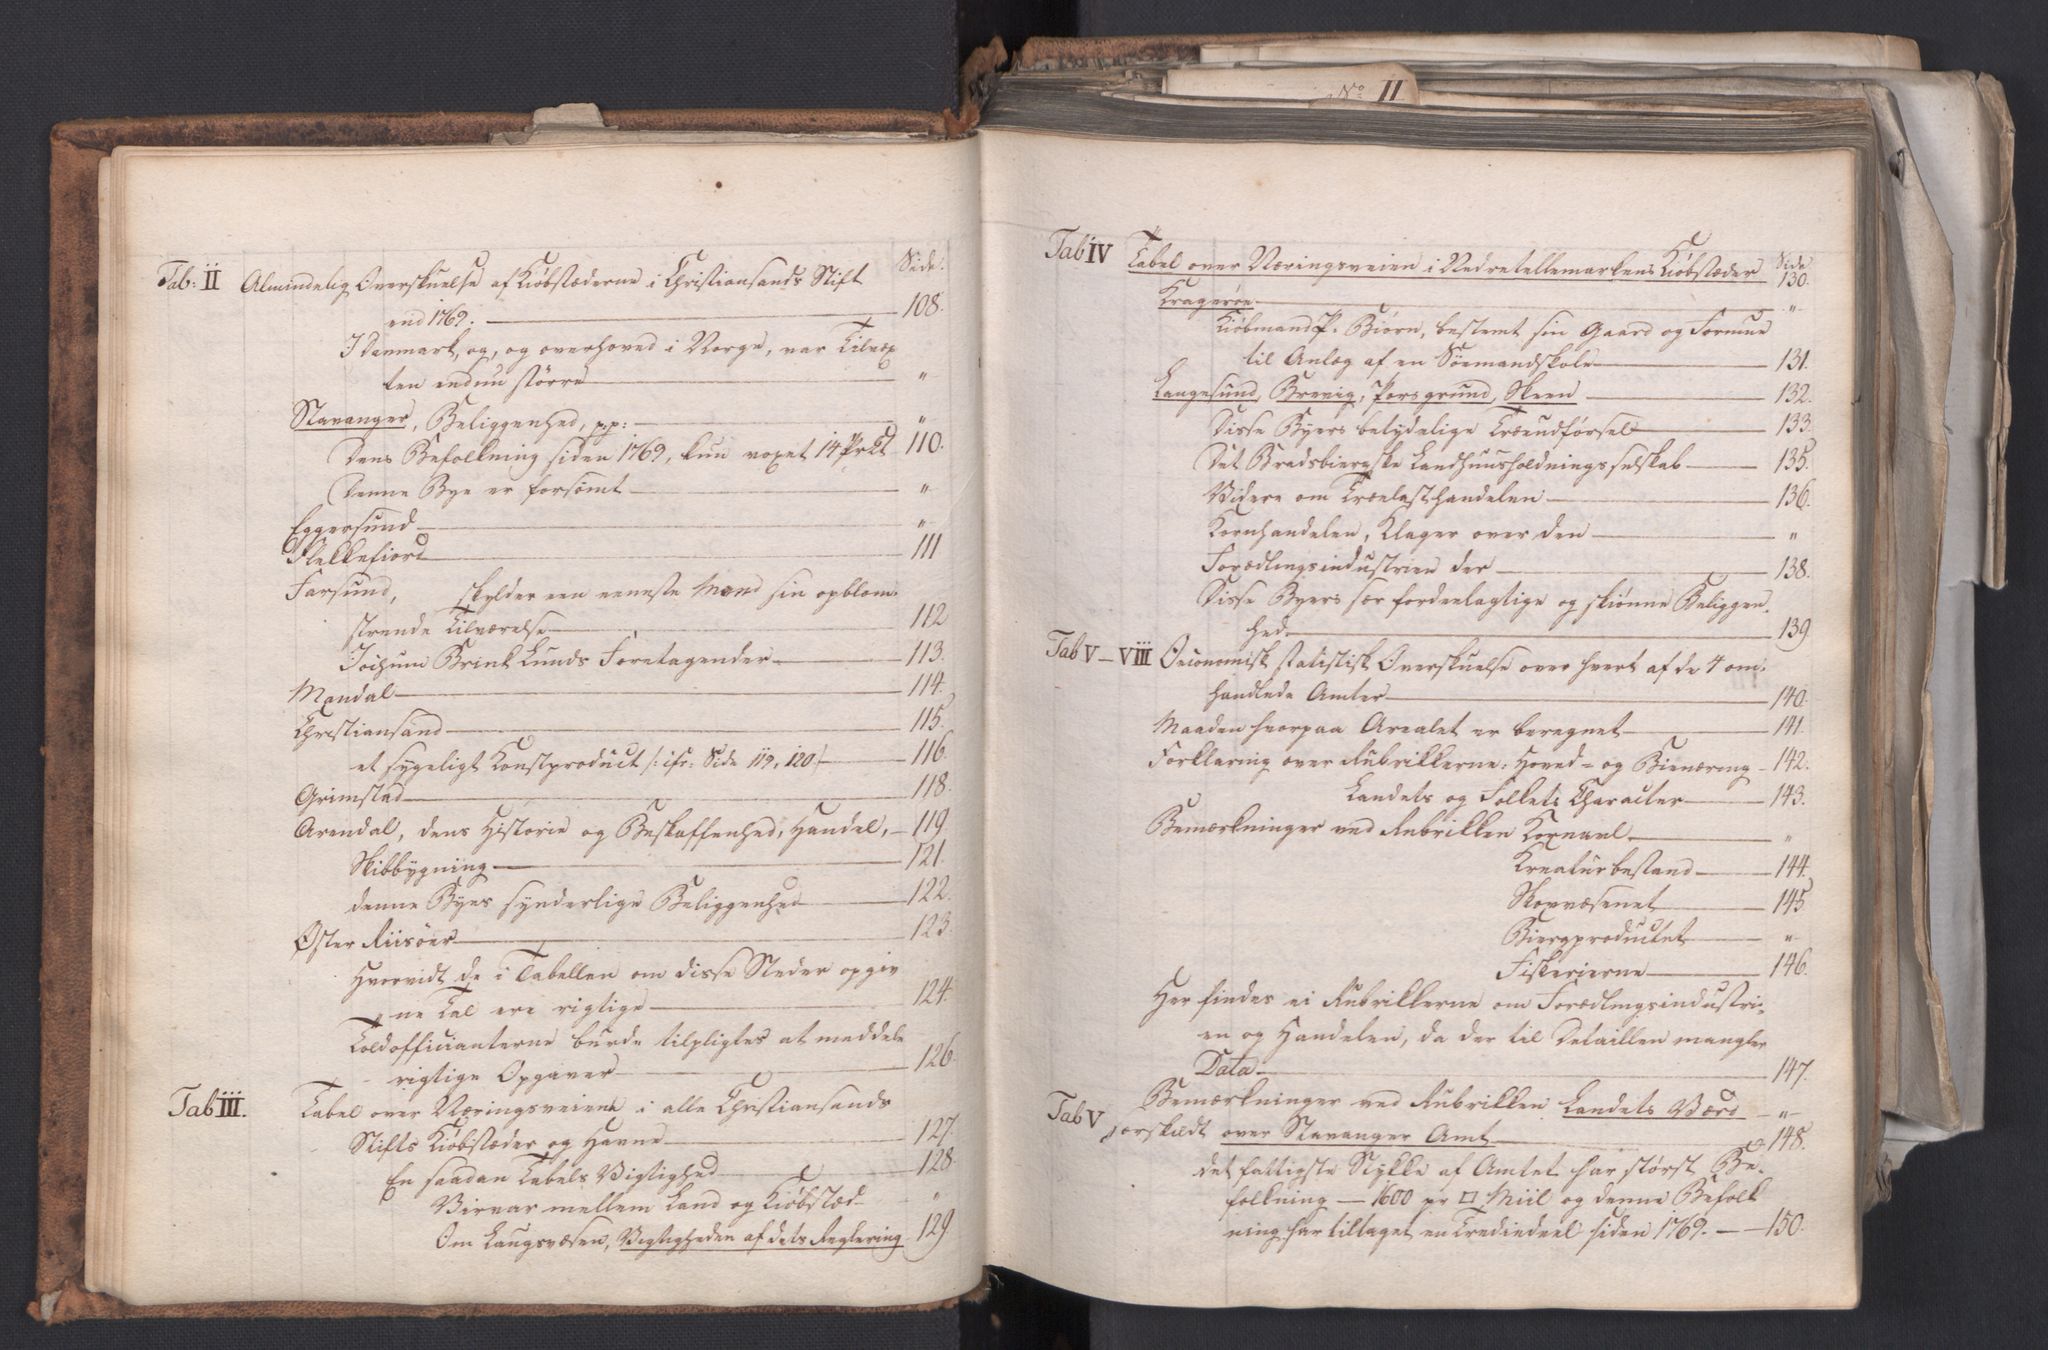 Side.
Tab: II Almindelig Overskuelse af Kiøbstæderne i Christiansands Stift
end 1769. 108.
I Danmark, og, og overhoved i Norge, var Tilvæx
ten endnu større "
Stavanger, Beliggenhed, pp: "
Dens Befolkning siden 1769, kun voxet 14 PrCt 110.
Denne Bye er forsømt "
Eggersund "
Flekkefiord 111
Farsund, skylder een eeneste Mand sin opblom-
strende Tilværelse 112
Jochum Brink Lunds Foretagender 113.
Mandal 114.
Christiansand 115.
et sygeligt Konstproduct /: cfr: Side 119, 120 / 116.
Grimstad 118.
Arendal, dens Historie og Beskaffenhed, Handel, 119
Skibbygning 121.
denne Byes synderlige Beliggenhed 122.
Øster Riisöer 123.
Hvorvidt de i Tabellen om disse Steder opgiv
ne Tal ere rigtige 124.
Toldofficianterne burde tilpligtes at meddele
rigtige Opgaver 126.
Tab III. Tabel over Næringsveiene i alle Christiansands
Stifts Kiøbstæder og Havne 127.
En saadan Tabels Vigtighed 128.
Virvar mellem Land og Kiøbstæd "
Om Laugsvæsen, Vigtigheden af dets Reglering 129.
No II
Tab IV Tabel over Næringsveien i Nedretellemarkens Kiøbstæder Side 130.
Kragerøe "
Kiøbmand P. Biörn, bestemt sin Gaard og Formue
til Anlæg af en Søemandsskole 131.
Langesund, Brevig, Porsgrund, Skeen 132.
Disse Byers betydelige Træeudførsel 133.
Det Bradsbiergske Landhuusholdningsselskab 135.
Videre om Trælasthandelen 136.
Kornhandelen, Klager over den "
Forædlingsindustrien der 138.
Disse Byers sær fordeelagtige og skiønne Beliggen-
hed 139
Tab V–VIII Oeconomisk statistisk Overskuelse over hvert af de 4 om-
handlede Amter 140.
Maaden hvorpaa Arealet er beregnet 141.
Forklaring over Rubrikkerne: Hoved- og Bienæring 142.
Landets og Folkets Character 143.
Bemærkninger ved Rubrikken Kornavl "
Kreaturbestand 144.
Skovvæsenet 145
Biergproductet "
Fiskerierne 146.
Her findes ei Rubrikkerne om Forædlingsindustri-
en og Handelen, da der til Detaillen mangler
Data 147.
Bemærkninger ved Rubrikken Landets Værd "
Tab V særskildt over Stavanger Amt 148.
det fattigste Stykke af Amtet har størst Be-
folkning — 1600 pr □ Miil og denne Befolk
ning har tiltaget en Trediedeel siden 1769. 150.